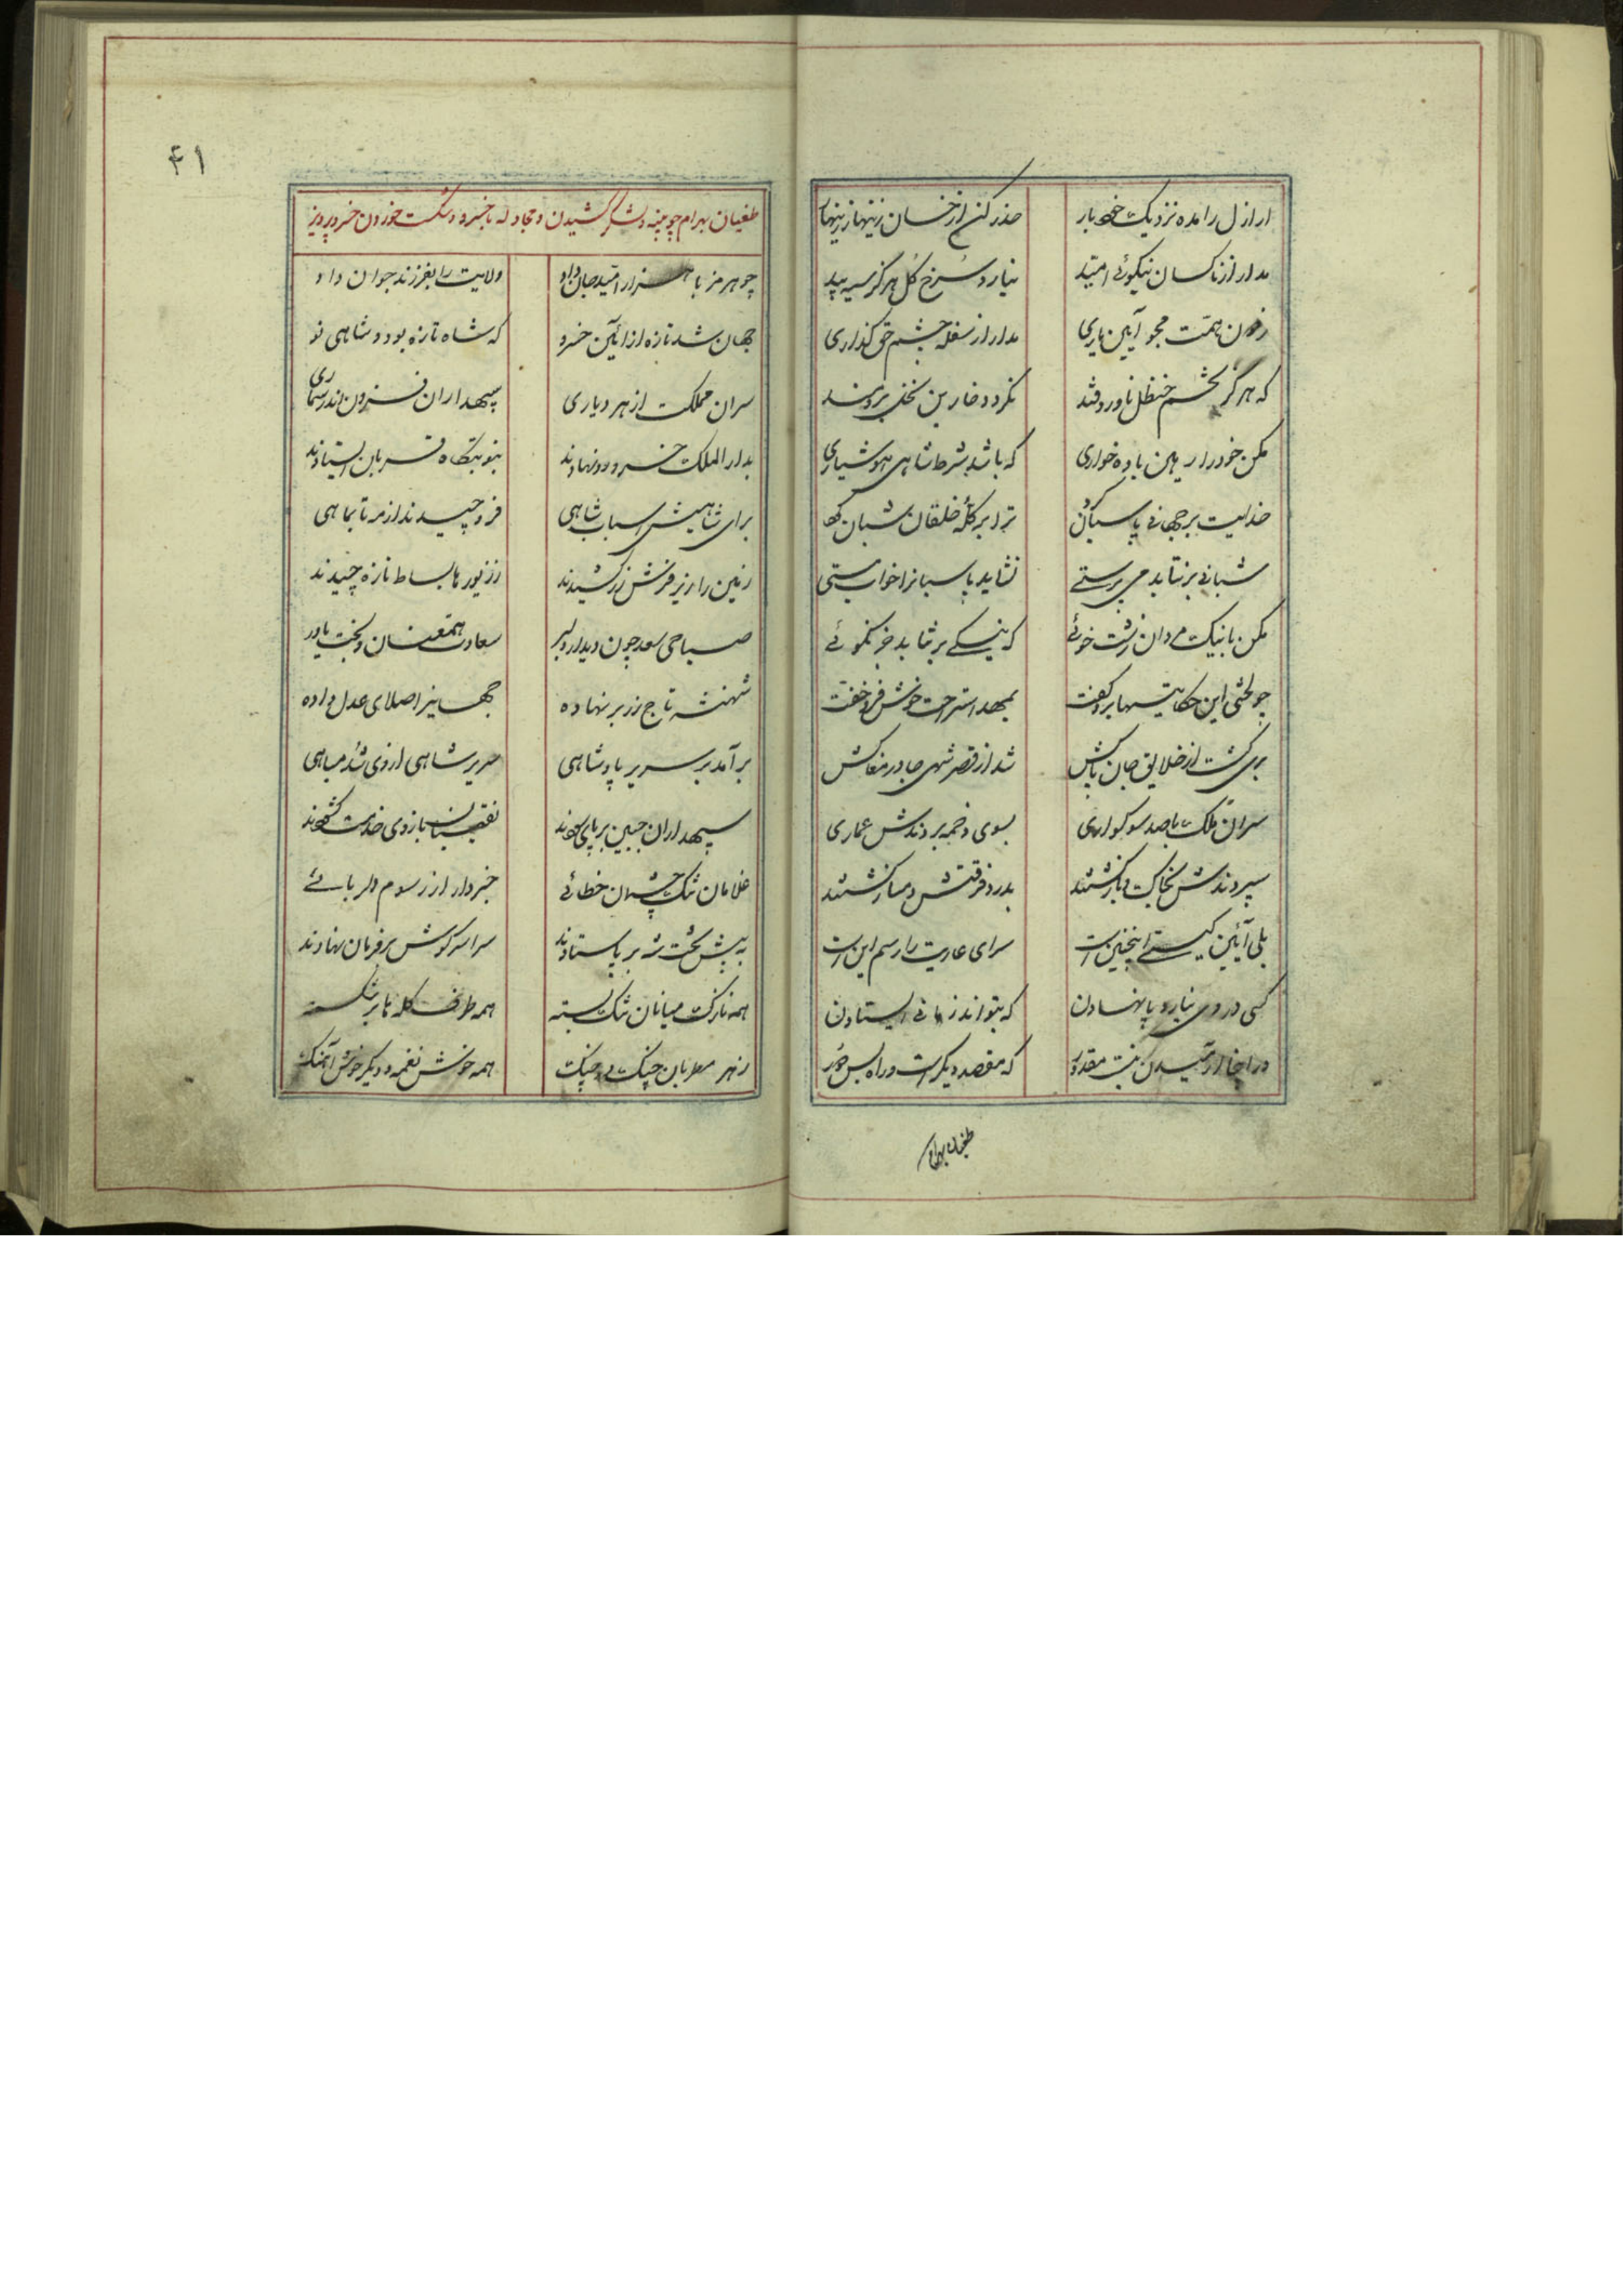 اراذل را مده نزدیک خود بار حذر کن از خسان زینهار زینهار
مدار از ناکسان نیکوئی امید نیارد سرخ گل هرگز سیه بید
زدون همت مجو آیین یاری مدار از سفله چشم حق گذاری
که هرگز تخم حنظل ناورد قند نگردد خاربن نخل برومند
مکن خود را رهین باده خواری که باشد شرط شاهی هوشیاری
خدایت بر جهانی پاسبان کرد ترا بر گله خلقان شبان کرد
شبانی برنتابد می پرستی نشاید پاسبانرا خواب مستی
مکن با نیک مردان زشت خوئی که نیکی برنتابد جز نکوئی
چو لختی این حکایتها برو گفت بمهد استراحت خوش فرو خفت
بری گشت از خلایق جان پاکش شد از قصر شهی جا در مغاکش
سران ملک با صد سوگواری بسوی دخمه بردندش عماری
سپردندش بخاک و بازگشتند بدرد فرقتش دمساز گشتند
بلی آئین گیتی اینچنین است سرای عاریت را رسم این است
کسی در وی نیارد پا نهادن که بتواند زمانی ایستادن
در اینجا آرمیدن نیست مقدور که مقصد دیگر است و راه بس دور
طغیان بهرام
۴۱
طغیان بهرام چوبینه و لشکر کشیدن و مجادله با خسرو و شکست خوردن خسرو پرویز
چو هرمز با هزار امید جان داد ولایت را بفرزند جوان داد
جهان شد تازه از آئین خسرو که شاه تازه بود و شاهی نو
سران مملکت از هر دیاری سپهداران فزون اندر شماری
بدار الملک خسرو رو نهادند بنوبتگاه قربان ایستادند
برای شاهیش اسباب شاهی فرو چیدند از مه تا بماهی
زمین را زیر فرش زر کشیدند ز زیورها بساط تازه چیدند
صباحی سعد چون دیدار دلبر سعادت همعنان و بخت یاور
شهنشه تاج زر بر سر نهاده جهانیرا صلای عدل داده
برآمد بر سریر پادشاهی سریر شاهی از وی شد مباهی
سپهداران جبین بر پای سودند نقیبان بازوی خدمت گشودند
غلامان تنگ چشمان خطائی خبردار از رسوم دلربائی
به پیش تخت شه بر پا ستادند سراسر گوش بر فرمان نهادند
همه نازک میانان تنگ بسته همه طرف کله ها بر شکسته
ز هر سو مطربان چنگ در چنگ همه خوش نغمه و دیگر خوش آهنگ